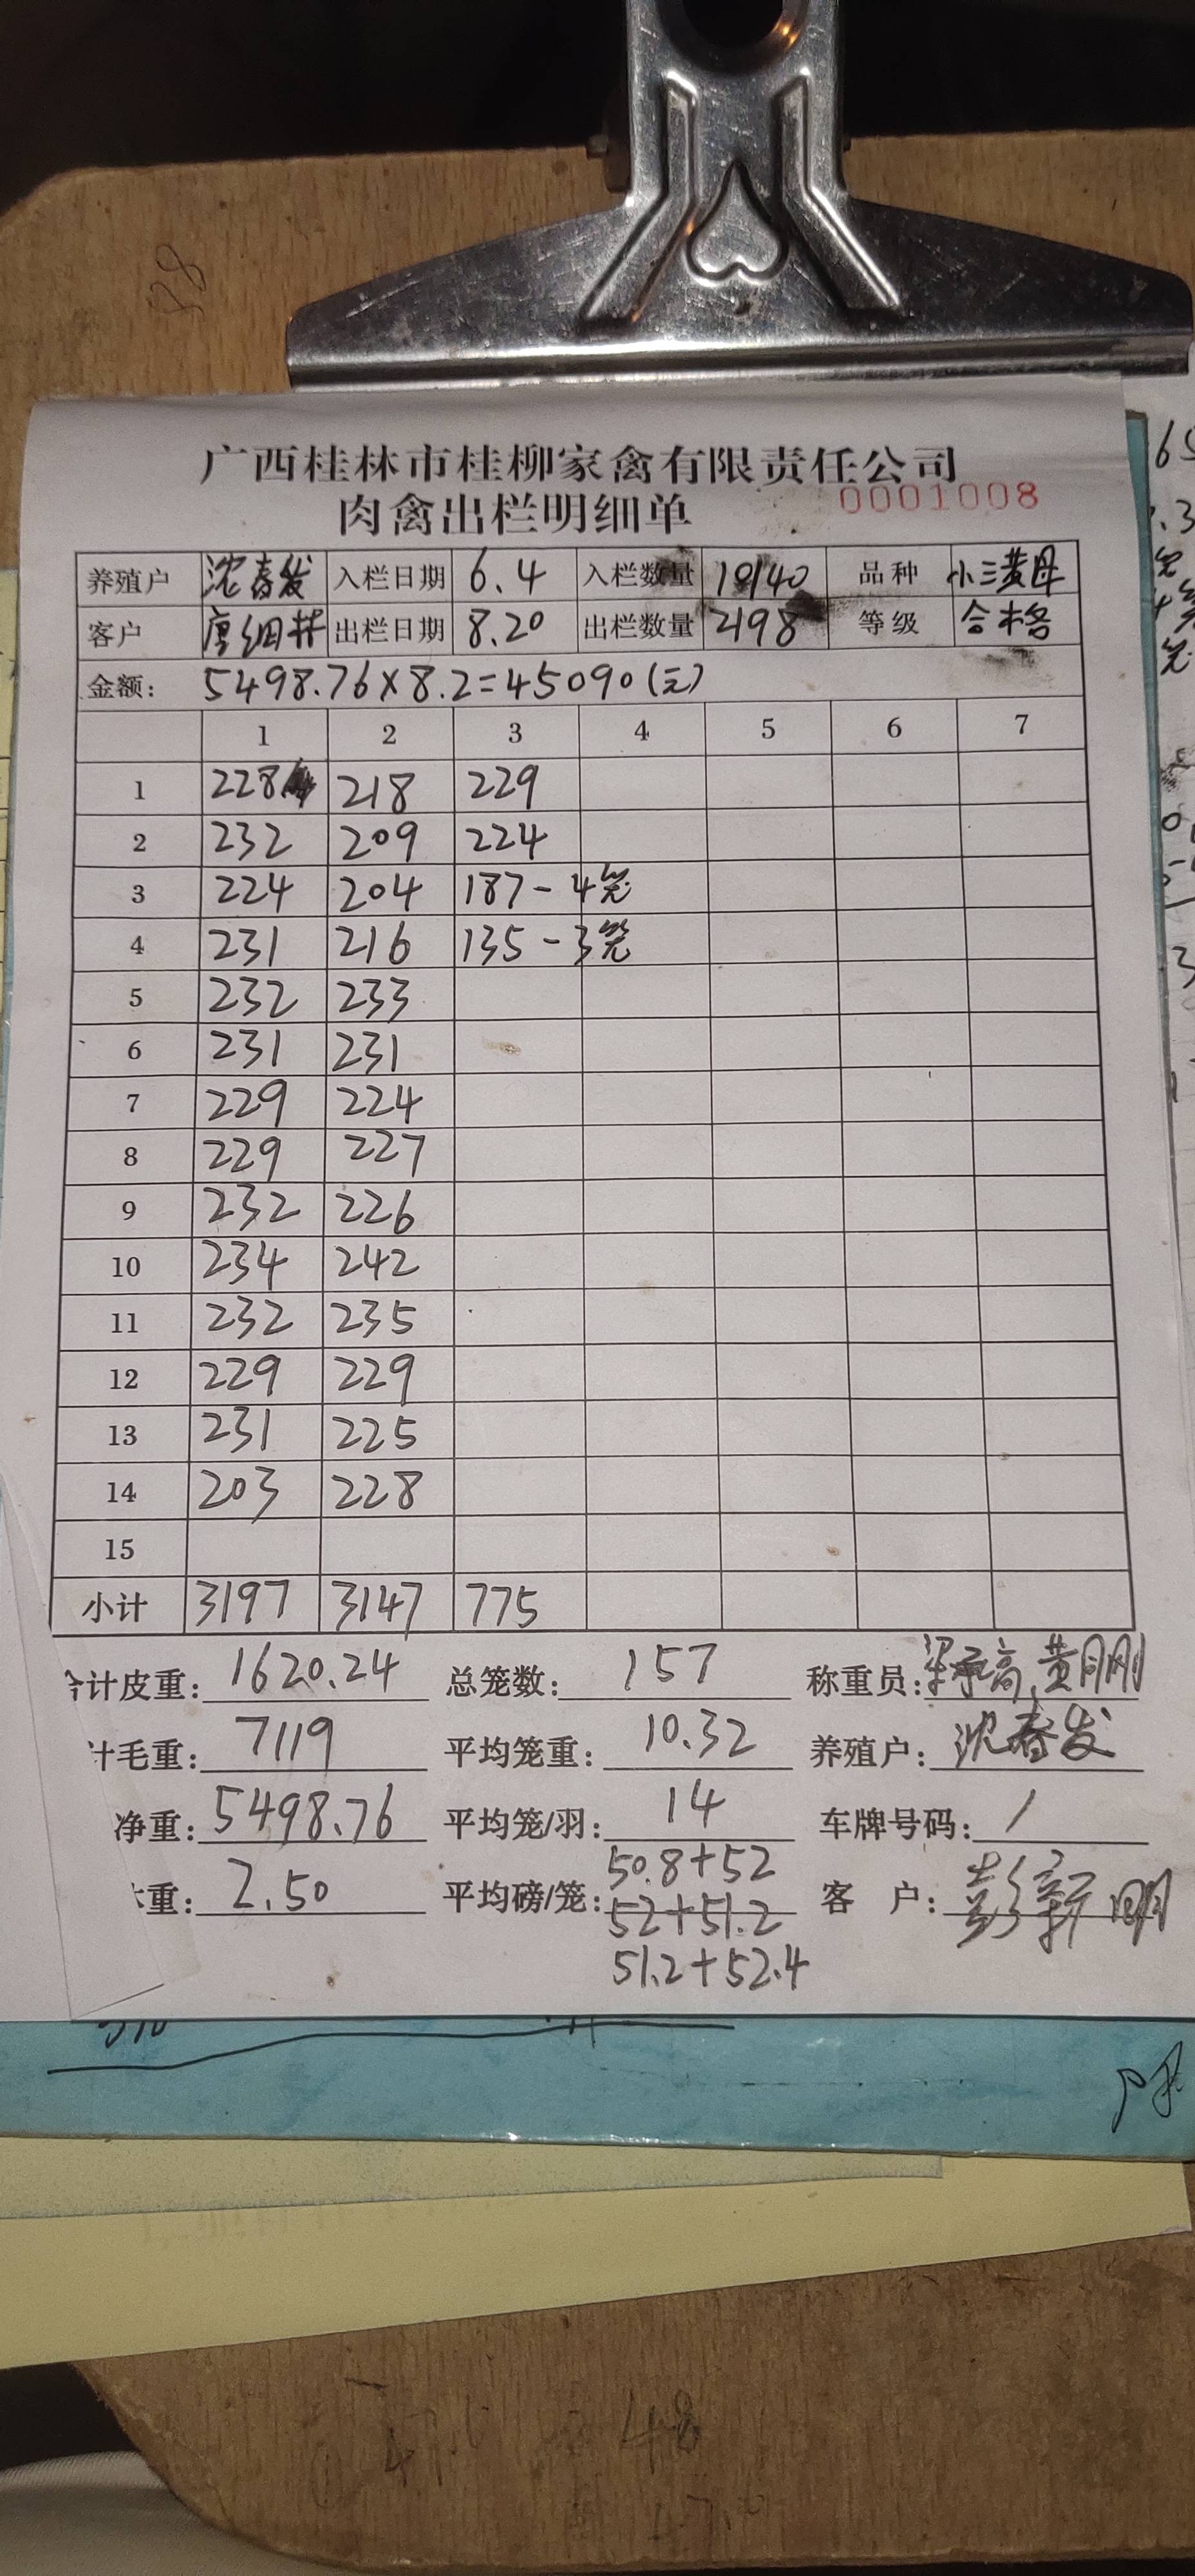 广西桂林市桂柳家禽有限责任公司
肉禽出栏明细单 0001008
养殖户 沈春发 入栏日期 6.4 入栏数量 10140 品种 小三黄母
客户 唐细井 出栏日期 8.20 出栏数量 2198 等级 合格
金额: 5498.76×8.2=45090(元)
1 2 3 4 5 6 7
1 228 218 229
2 232 209 224
3 224 204 187-4笼
4 231 216 135-3笼
5 232 233
6 231 231
7 229 224
8 229 227
9 232 226
10 234 242
11 232 235
12 229 229
13 231 225
14 203 228
15
小计 3197 3147 775
合计皮重: 1620.24 总笼数: 157 称重员: 黄月刚
计毛重: 7119 平均笼重: 10.32 养殖户: 沈春发
净重: 5498.76 平均笼/羽: 14 车牌号码: /
重: 2.50 平均磅/笼: 50.8+52 客户: 彭新明
52+51.2
51.2+52.4